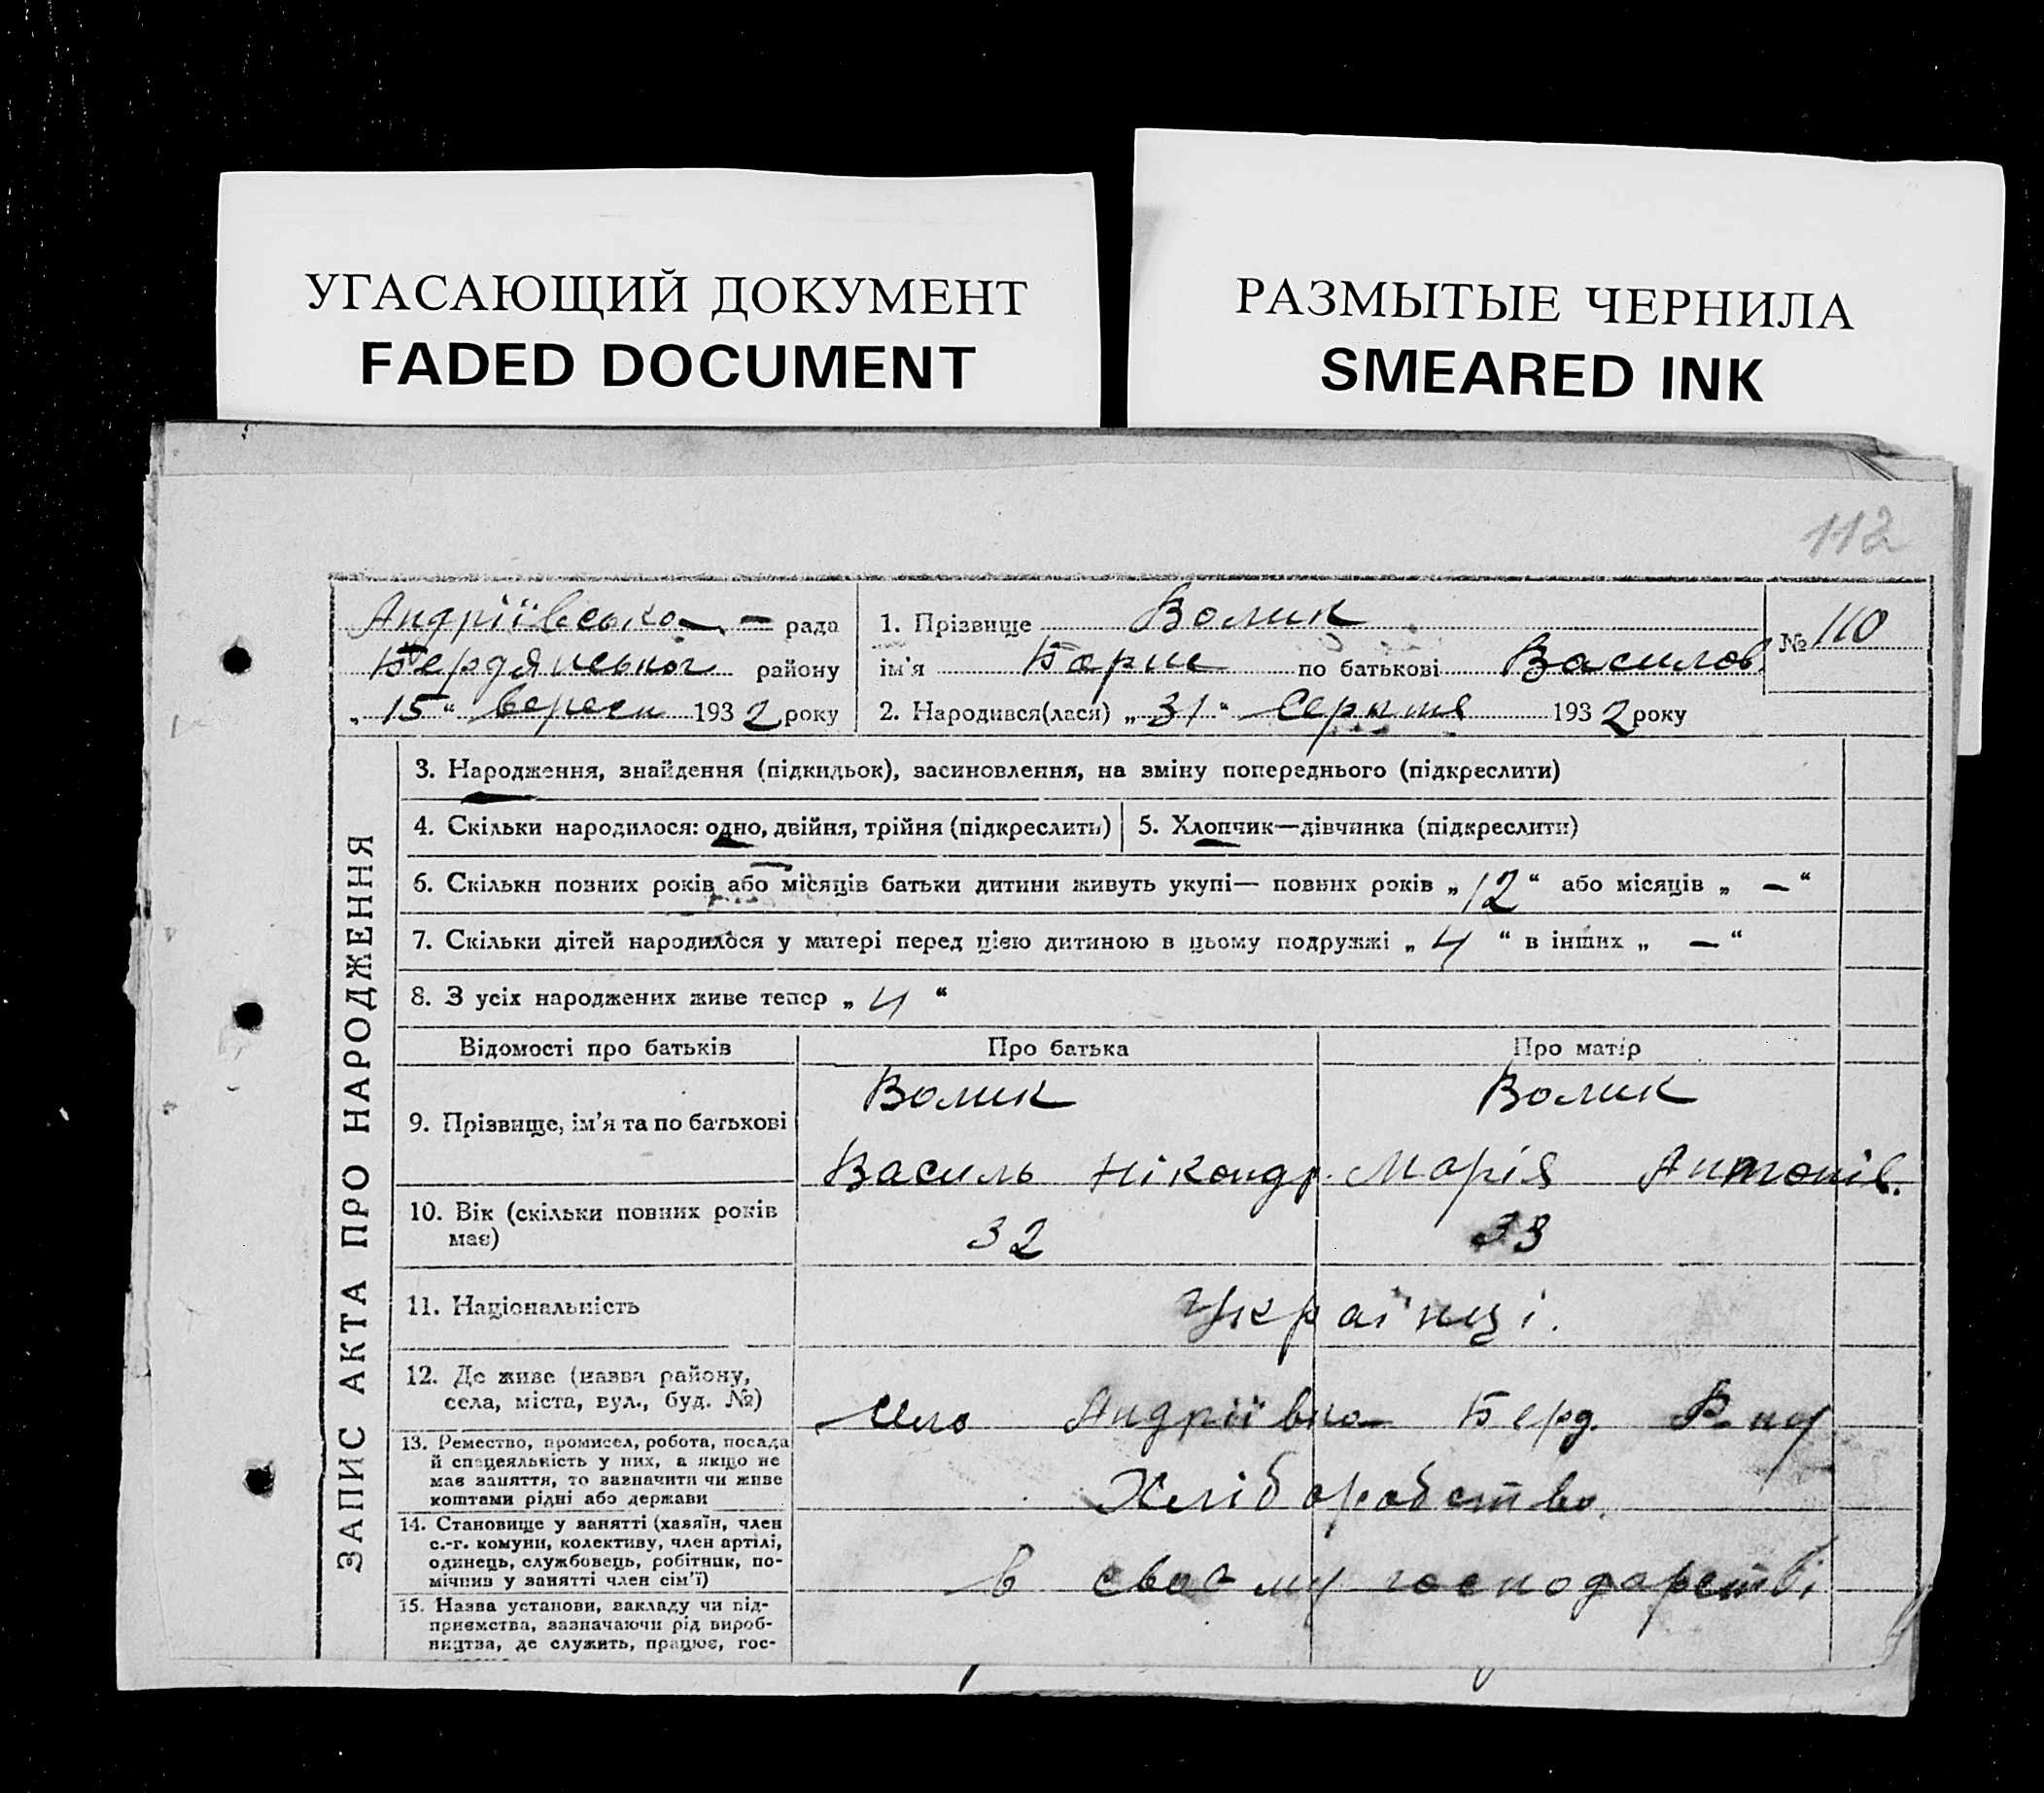 УГАСАЮЩИЙ ДОКУМЕНТ
FADED DOCUMENT
РАЗМЫТЫЕ ЧЕРНИЛА
SMEARED INK
112
Андріївська — рада
Бердянського району
„ 15 “ вересн 1932 року
1. Прізвище Волик
ім'я Борис по батькові Василов.
№ 110
2. Народився(лася) „ 31 “ Серпня 1932 року
ЗАПИС АКТА ПРО НАРОДЖЕННЯ
3. Народження, знайдення (підкидьок), засиновлення, на зміну попереднього (підкреслити)
4. Скільки народилося: одно, двійня, трійня (підкреслить) 5. Хлопчик—дівчинка (підкреслити)
6. Скільки повних років або місяців батьки дитини живуть укупі— повних років „ 12 “ або місяців „ — “
7. Скільки дітей народилося у матері перед цією дитиною в цьому подружжі „ 4 “ в інших „ — “
8. З усіх народжених живе тепер „ 4 “
Відомості про батьків Про батька Про матір
9. Прізвище, ім'я та по батькові
Волик Волик
Василь Нікондр. Марія Антонів.
10. Вік (скільки повних років
має)
32 33
11. Національність Українці.
12. Де живе (назва району,
села, міста, вул., буд. №)
село Андріївка Берд. Р-ну
13. Ремество, промисел, робота, посада
й спецеяльність у них, а якщо не
має заняття, то зазначити чи живе
коштами рідні або держави
Хліборобство.
14. Становище у занятті (хазяїн, член
с.-г. комуни, колективу, член артілі,
одинець, службовець, робітник, по-
мічнив у занятті член сім'ї)
в своему господарстві
15. Назва установи, закладу чи під-
приємства, зазначаючи рід вироб-
ництва, де служить, працює, гос-